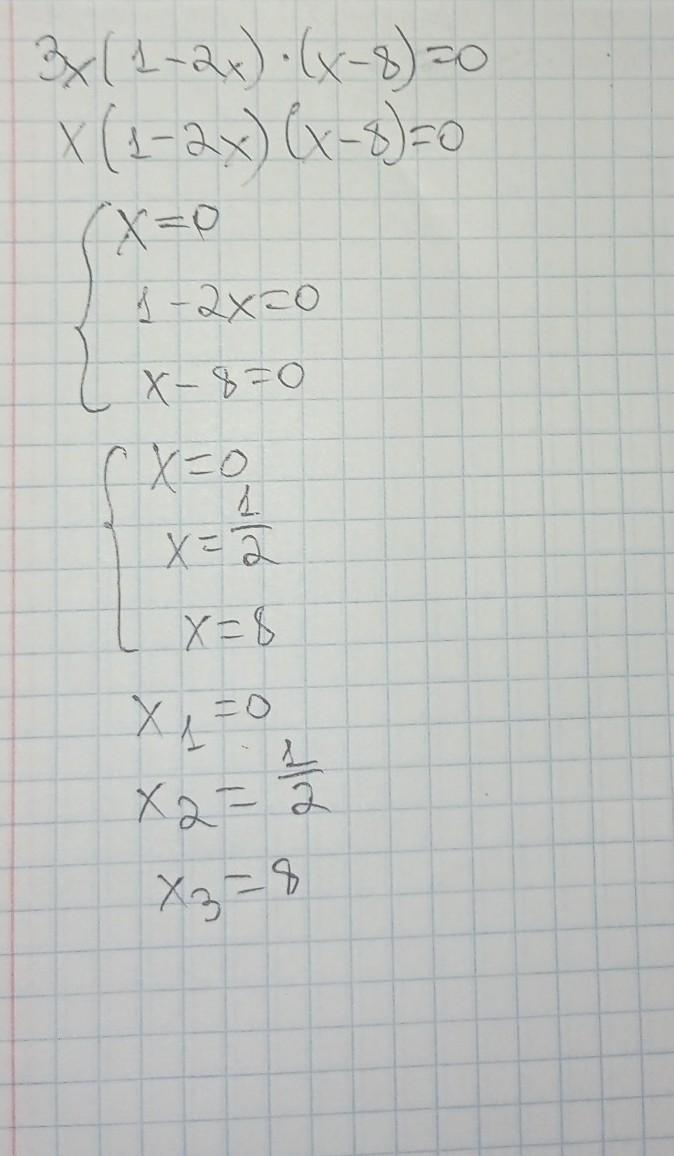 3x(1-2x)·(x-8)=0
x(1-2x)(x-8)=0
{ x=0
1-2x=0
x-8=0
{ x=0
x=1/2
x=8
x₁=0
x₂=1/2
x₃=8